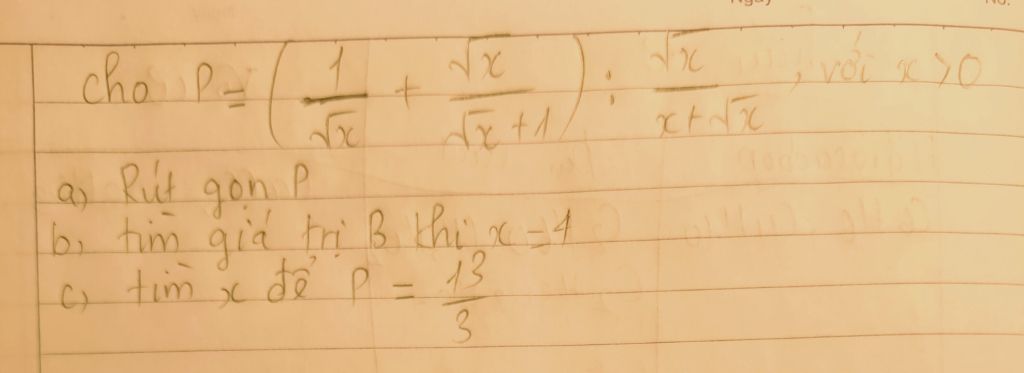 Ngày No.
Cho P = ( 1/√x + √x/(√x + 1) ) : √x/(x + √x) , với x > 0
a) Rút gọn P
b, tìm giá trị B khi x = 4
c) tìm x để P = 13/3